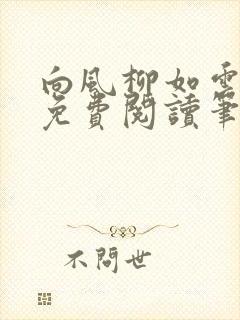 向風柳如雲
免費閱讀筆
不問世